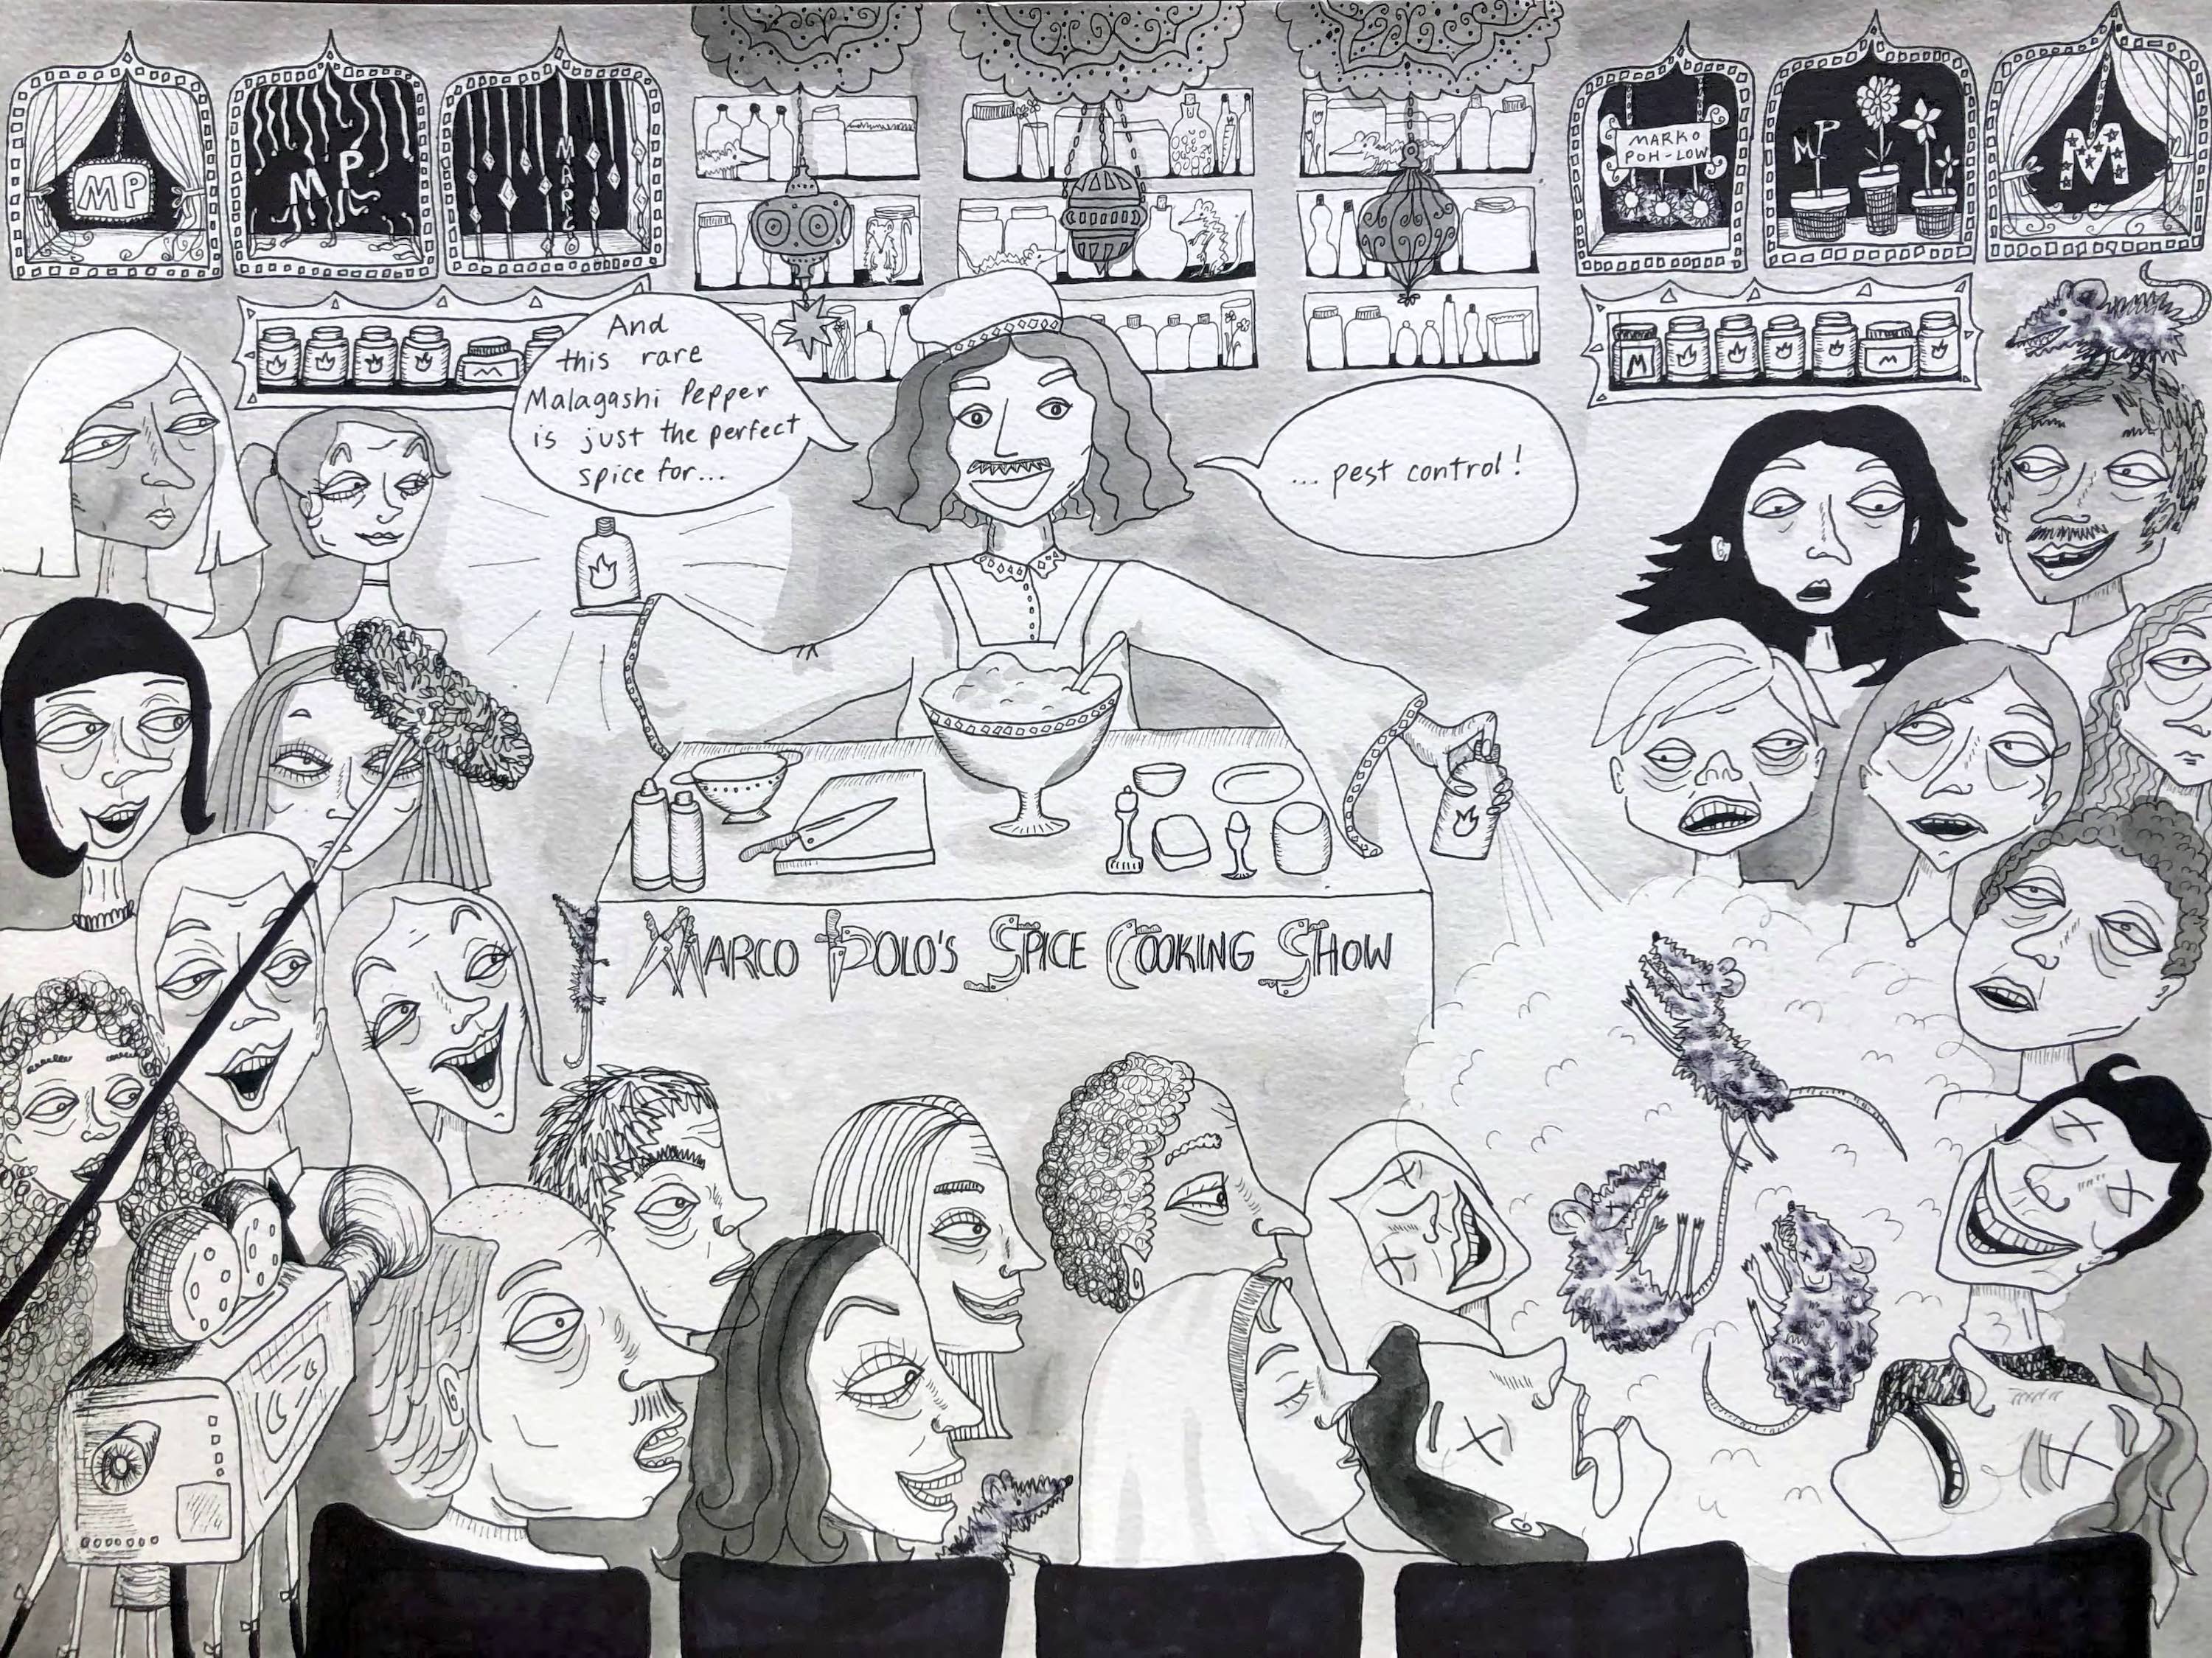 MP
MP
MARCO
MARKO
POH-LOW
MP
M
M
M
M
M
And
this rare
Malagashi Pepper
is just the perfect
spice for...
... pest control!
MARCO POLO'S SPICE COOKING SHOW